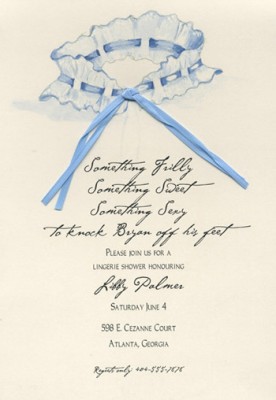 Something Frilly
Something Sweet
Something Sexy
to knock Bryan off his feet
Please join us for a
lingerie shower honouring
Libby Palmer
Saturday June 4
598 E. Cezanne Court
Atlanta, Georgia
Regrets only 404-555-7676